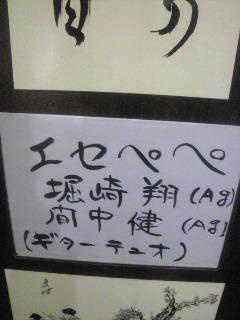 エセペペ
堀崎 翔(Ag)
間中 健(Ag)
(ギターデュオ)